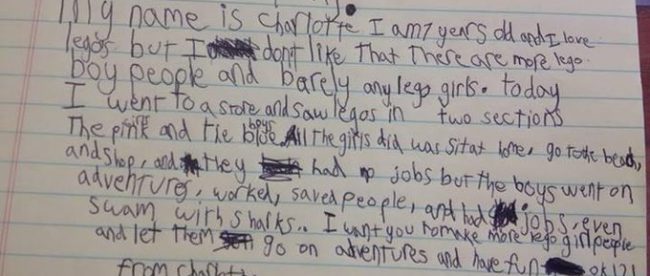 My name is Charlotte. I am 7 years old and I love
legos but I dont like that There are more lego
boy people and barely any lego girls. today
I went to a store and saw legos in two sections
The pink and the blue. All the girls did was sit at home, go to the beach,
boys
and shop, and they had no jobs but the boys went on
adventures, worked, saved people, and had jobs, even
swam with sharks.. I want you to make more lego girl people
and let them go on adventures and have fun ok!?!
from Charlotte